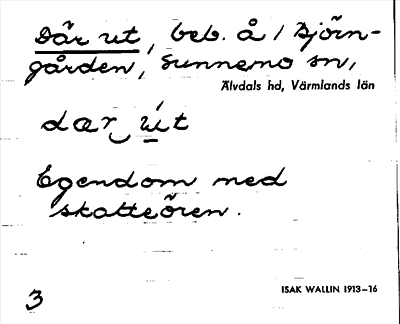 Där ut, beb. å 1 Björn-
gården, Sunnemo sn,
Älvdals hd, Värmlands län
dær út
Egendom med
skatteören.
ISAK WALLIN 1913–16
3